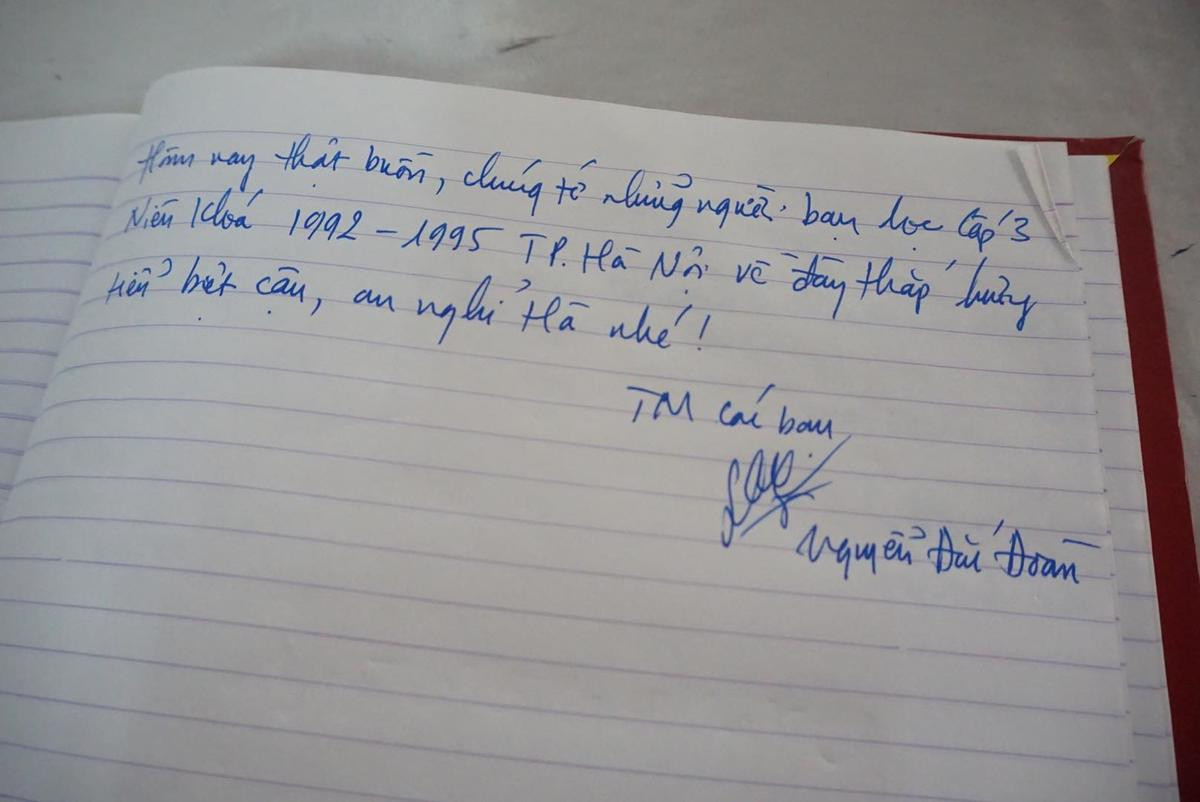 Hôm nay thật buồn, chúng tớ những người bạn học cấp 3
Niên Khoá 1992 - 1995 TP. Hà Nội về đây thắp hương
tiễn biệt cậu, an nghỉ Hà nhé!
TM các bạn
Nguyễn Đức Đoàn